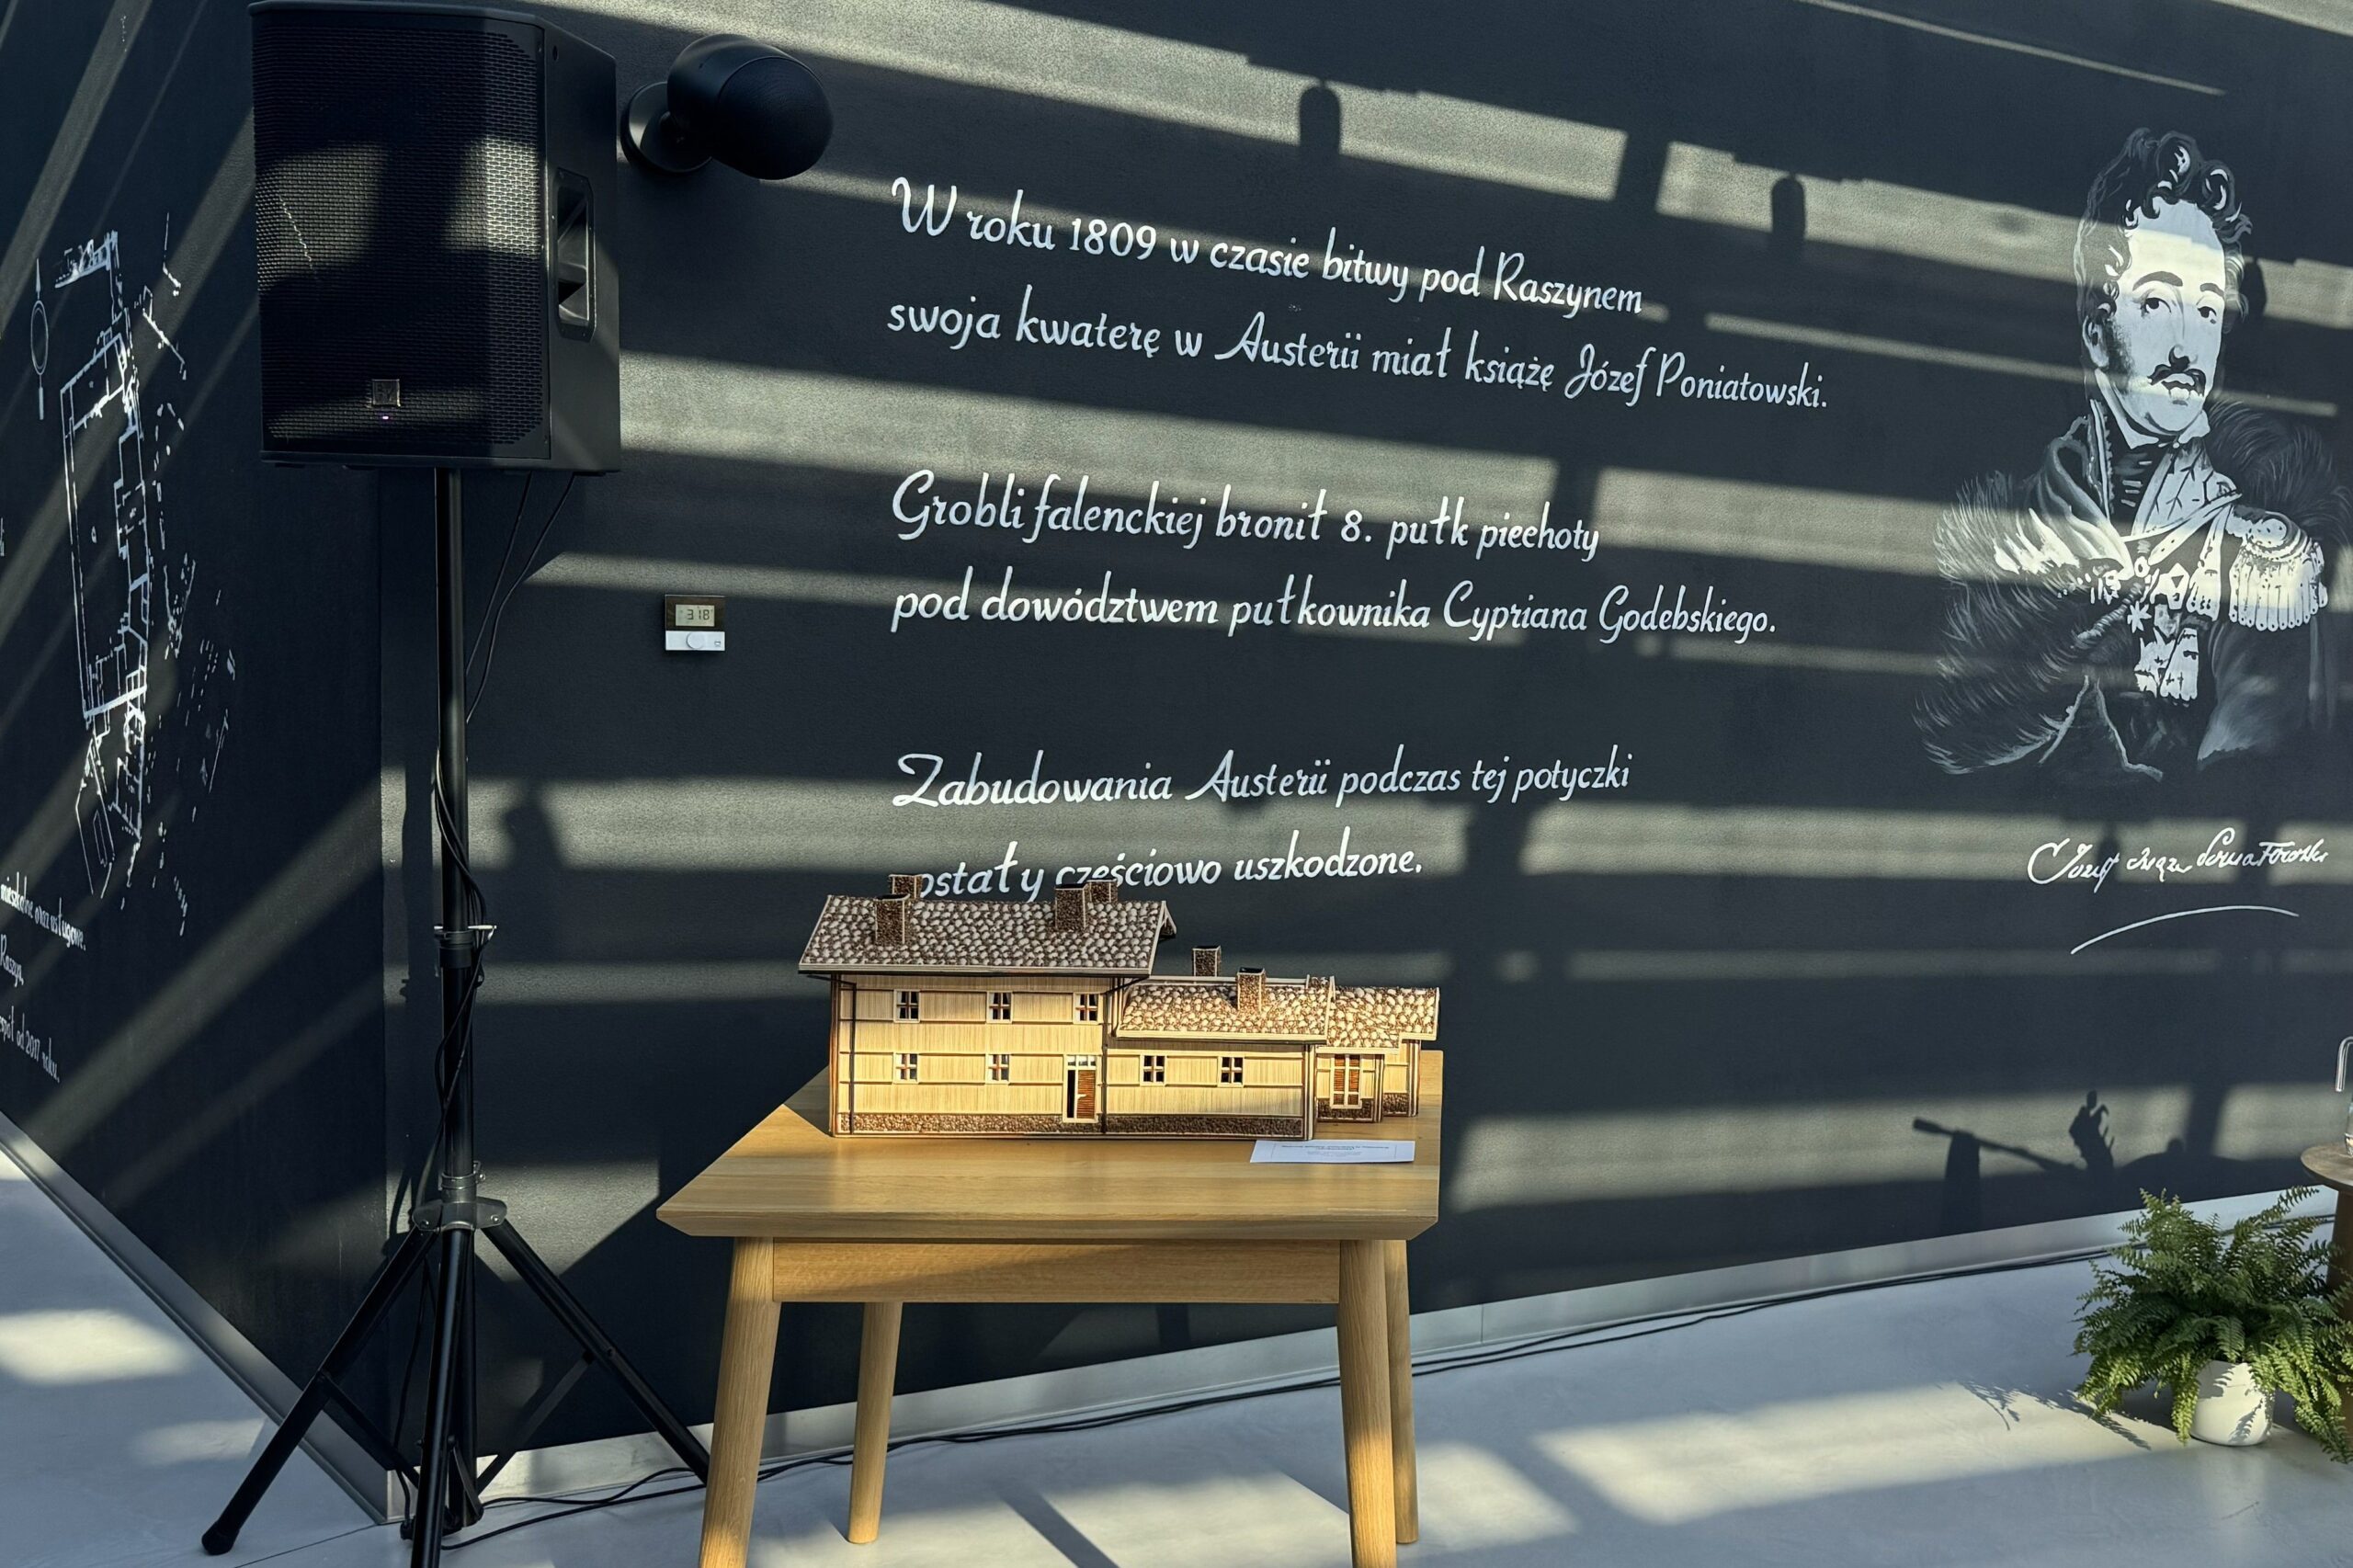 W roku 1809 w czasie bitwy pod Raszynem
swoja kwaterę w Austerii miał książę Józef Poniatowski.
Grobli falenckiej bronił 8. pułk piechoty
pod dowództwem pułkownika Cypriana Godebskiego.
Zabudowania Austerii podczas tej potyczki
ostały częściowo uszkodzone.
mieszkalne oraz usługowe.
Raszyn,
od 2017 roku.
318